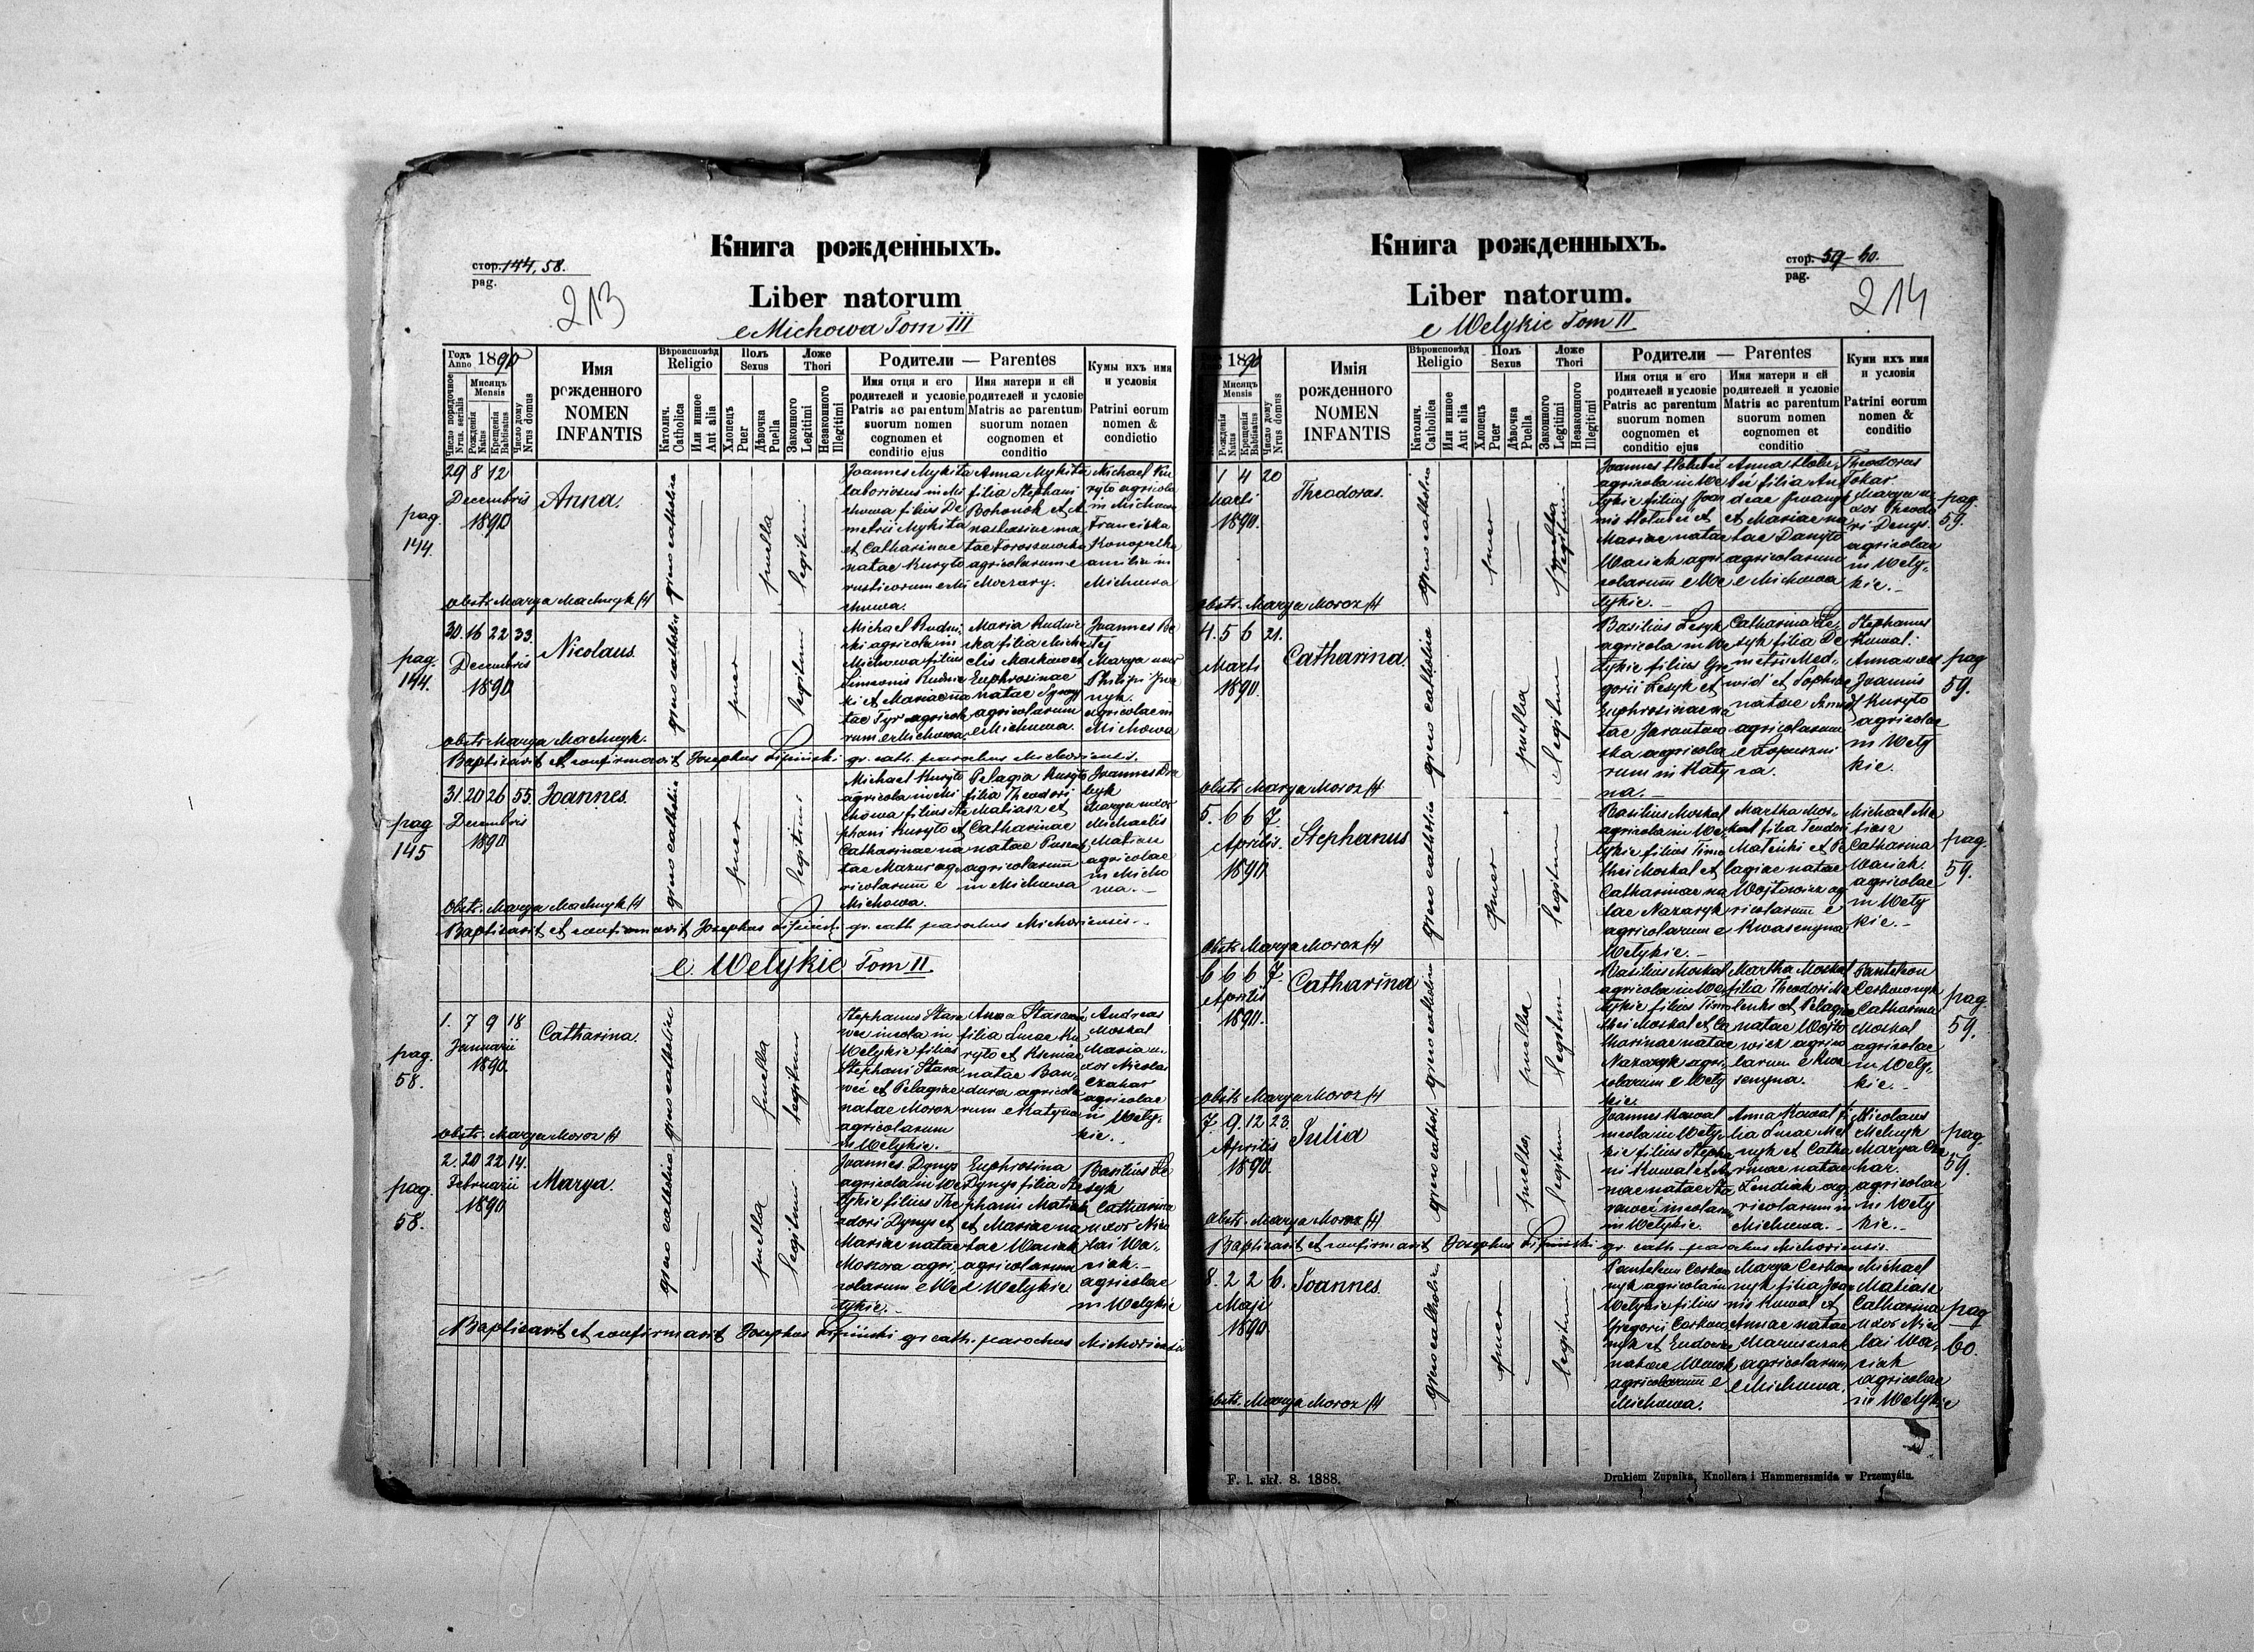 Книга рожденныхъ.
стор. 144, 58.
pag.
213
Liber natorum
e Michowa Tom III
Годъ Anno 1890
Число порядочное Nrus. serialis
Мисяцъ Mensis
Рождения Natus
Крещения Babtisatus
Число дому Nrus domus
Имя рожденного NOMEN INFANTIS
Вѣроисповѣд Religio
Католич. Catholica
Или инное Aut alia
Полъ Sexus
Хлопецъ Puer
Дѣвочка Puella
Ложе Thori
Законного Legitimi
Незаконного Illegitimi
Родители — Parentes
Имя отця и его родителей и условіе
Patris ac parentum suorum nomen cognomen et conditio ejus
Имя матери и ей родителей и условіе
Matris ac parentum suorum nomen cognomen et conditio
Кумы ихъ имя и условія
Patrini eorum nomen & condictio
pag. 144.
29 8 12
Decembris
1890
Anna.
greco catholica
puella
legitimi
Joannes Mykita
laboriosus in Mi
chowa filius De
metrii Mykita
et Catharinae
natae Kuryto
rusticorum e Mi
chowa.
Anna Mykita
filia Stephani
Bohonok et A
nastasiae na
agricolarum e
Moczary.
Michael Ku
ryto agricola
in Michowa
Franciska
Konopelka
in
Michowa
obstr. Marya Machnyk
pag. 144.
30. 16 22 33.
Decembris
1890
Nicolaus.
greco catholica
puer
legitimi
Michael Rudni
ki agricola in
Michowa filius
Simeonis Rudnic
ki et Mariae na
tae Tyr agricola
rum e Michowa.
Maria Rudnic
ka filia Micha
elis Maskow et
Euphrosinae
natae
agricolarum
e Michowa.
Joannes
Marya uxor
Philipi
agricolae in
Michowa
obstr. Marya Machnyk.
Baptisavit et confirmavit Josephus Lipinski gr. cath. parochus Michoviensis.
pag 145
31. 20 26 55.
Decembris
1890
Joannes.
greco catholica
puer
legitimi
Michael Kuryto
agricola in Mi
chowa filius Ste
phani Kuryto et
Catharinae na
tae Mazur ag
ricolarum e
Michowa.
Pelagia Kuryto
filia Theodori
Matiasz et
Catharinae
natae
agricolarum
in Michowa
Joannes
Marya uxor
Michaelis
agricolae
in Micho
wa. —
Obstr. Marya Machnyk
Baptisavit et confirmavit Josephus Lipinski gr. cath. parochus Michoviensis.
e Welykie Tom II
pag. 58.
1. 7 9 18
Januarii
1890.
Catharina.
greco catholica
puella
legitimi
Stephanus Stara
wec incola in
Welykie filius
Stephani Stara
wec et Pelagiae
natae Moroz
agricolarum
in Welykie.
Anna
filia Lucae Ku
ryto et Kseniae
natae Ban
dura agricola
rum e Katyna
Andreas
Moskal
Maria u
xor Nicolai
Czakar
agricolae
in Wely
kie.
obstr. Marya Moroz
pag. 58.
2. 20 22 14.
Februarii
1890
Marya.
greco catholica
puella
legitimi
Joannes Dynys
agricola in We
lykie filius The
odori Dynys et
Mariae natae
Moskva agri
colarum e We
lykie. —
Euphrosina
Dynys filia Ste
phani
et Mariae na
tae Wasiak
agricolarum
e Welykie
Basilius Le
syk
Catharina
uxor Nico
lai Wa
siak. —
agricolae
in Welykie
Baptisavit et confirmavit Josephus Lipinski gr. cath. parochus Michoviensis
Книга рожденныхъ.
стор. 59 - 60.
pag.
214
Liber natorum.
e Welykie Tom II
1890
Мисяцъ Mensis
Рожденія Natus
Крещенія Babtisatus
Число дому Nrus domus
Имія рожденного NOMEN INFANTIS
Вѣроисповѣд Religio
Католич. Catholica
Или инное Aut alia
Полъ Sexus
Хлопецъ Puer
Дѣвочка Puella
Ложе Thori
Законного Legitimi
Незаконного Illegitimi
Родители — Parentes
Имя отця и его родителей и условіе
Patris ac parentum suorum nomen cognomen et conditio ejus
Имя матери и ей родителей и условіе
Matris ac parentum suorum nomen cognomen et conditio
Куми ихъ имя и условія
Patrini eorum nomen & conditio
1 4 20
Marti
1890.
Theodorus.
greco catholica
puer
legitimi
Joannes
agricola in We
lykie filius Joan
nis et
Mariae natae
Wasiek agri
colarum e We
lykie. —
Anna
filia An
dreae
et Mariae na
tae Danyto
agricolarum
e Michowa
Theodorus
Tokar
Marya u
xor Theodo
ri Denys.
agricolae
in Wely
kie. —
pag. 59.
obstr. Marya Moroz
4. 5 6 21.
Marti
1890.
Catharina.
greco catholica
puella
legitimi
Basilius Lesyk
agricola in We
lykie filius Gre
gorii Lesyk et
Euphrosinae na
tae
agricola
rum in Katy
na. —
Catharina Le
syk filia De
metrii Med
wid et Sophiae
natae
agricolarum
e Lopuszni
ca.
Stephanus
Kuwal.
Anna uxor
Joannis
Kuryto
agricolae
in Wely
kie.
pag 59.
obstr. Marya Moroz
5. 6 6 7
Aprilis
1890
Stephanus
greco catholica
puer
legitimi
Basilius Moskal
agricola in We
lykie filius Timo
thei Moskal et
Catharinae na
tae Nazaryk
agricolarum e
Welykie. —
Martha Mos
kal filia Teodori
et Pe
lagiae natae
Wojtowicz ag
ricolarum e
Kwasenyna
Michael Ma
tiasz
Catharina
Wasiak.
agricolae
in Wely
kie. —
pag. 59.
obstr. Marya Moroz
6 6 6 7.
Aprilis
1890.
Catharina
greco catholica
puella
legitimi
Basilius Moskal
agricola in We
lykie filius Timo
thei Moskal et Ca
tharinae natae
Nazaryk agri
colarum e Wely
kie.
Martha Moskal
filia Theodori
et Pelagiae
natae Wojto
wicz agrico
larum e Kwa
senyna.
Panteleon
Catharina
Moskal
agricolae
in Wely
kie. —
pag. 59.
obstr. Marya Moroz
7. 9. 12 23.
Aprilis
1890.
Julia
greco cathol.
puella
legitimi
Joannes Kowal
incola in Wely
kie filius Stepha
ni Kuwal et An
nae natae Sta
rawec incolarum
in Welykie.
Anna Kowal fi
lia Lucae Mel
nyk et Catha
rinae natae
Lendiak ag
ricolarum in
Michowa. —
Nicolaus
Melnyk
Marya Cza
kar.
agricolae
in Wely
kie. —
pag. 59.
obstr. Marya Moroz
Baptisavit et confirmavit Josephus Lipinski gr. cath. parochus Michoviensis.
8. 2 2 6.
Maji
1890
Joannes.
greco catholica
puer
legitimi
agricola in
Welykie filius
Gregorii
et
natae
agricolarum e
Michowa.
Marya
filia Joan
nis Kuwal et
Annae natae
agricolarum
e Michowa.
Michael
Matiasz
Catharina
uxor Nico
lai Wa
siak
agricolae
in Welykie
pag 60.
obstr. Marya Moroz
F. l. skł. 8. 1888.
Drukiem Żupnika, Knollera i Hammerszmida w Przemyślu.